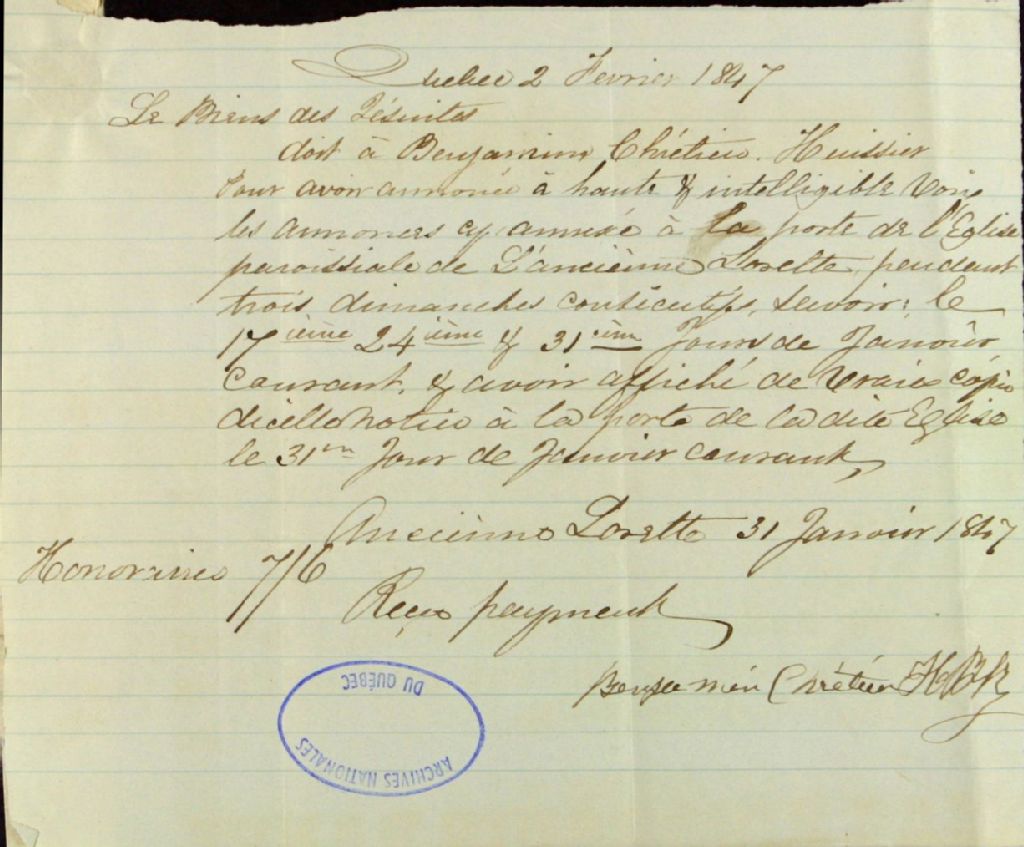 Quebec 2 Fevrier 1847
Le Biens des Jésuites
doit à Benjamin Chrétien. Huissier
Pour avoir annoncé à haute & intelligible Voix
les annonces cy annexé à la porte de l'Eglise
paroissiale de L'ancienne Lorette, pendant
trois dimanches consécutifs, Savoir; le
17 ième 24 ième & 31 ième Jours de Janvier
Courant, & avoir affiché de Vraies copie
dicelle notice à la porte de la dite Eglise
le 31em Jour de Janvier courant,
Ancienne Lorette 31 Janvier 1847
Honoraires 7/6
Reçu payment
Benjamin Chrétien
ARCHIVES NATIONALES
DU QUÉBEC